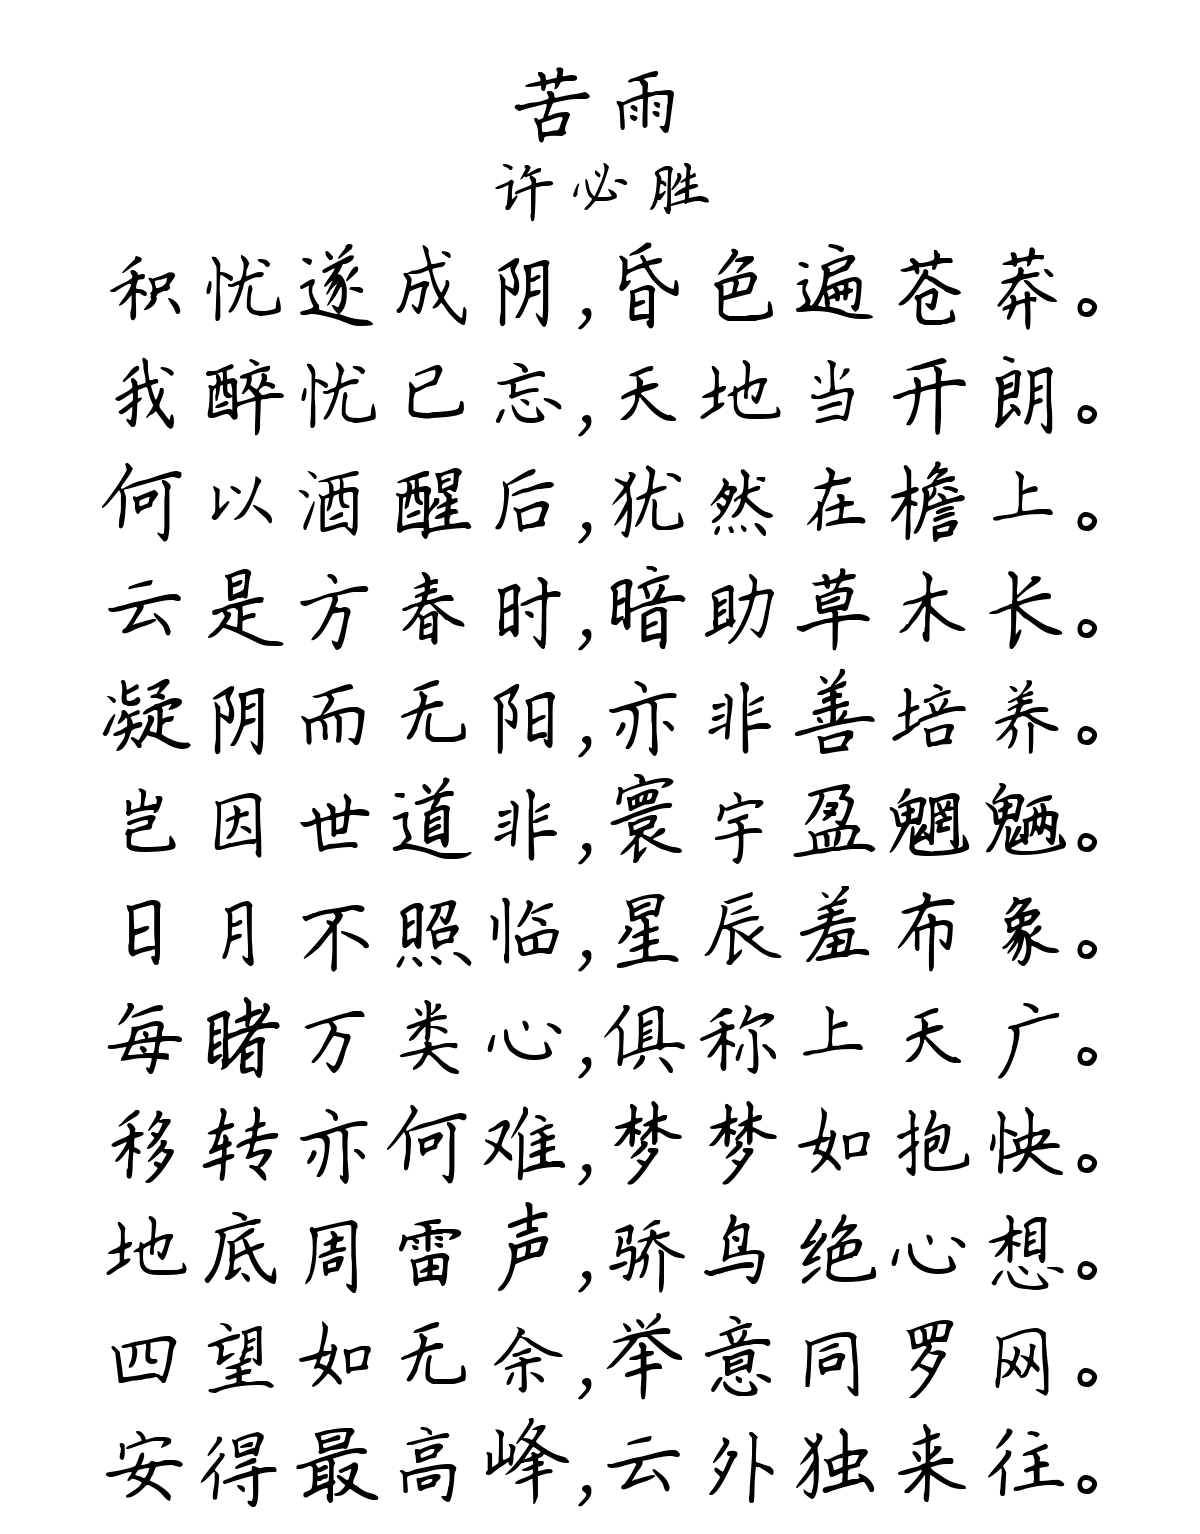 苦雨
许必胜
积忧遂成阴,昏色遍苍莽。
我醉忧已忘,天地当开朗。
何以酒醒后,犹然在檐上。
云是方春时,暗助草木长。
凝阴而无阳,亦非善培养。
岂因世道非,寰宇盈魍魉。
日月不照临,星辰羞布象。
每睹万类心,俱称上天广。
移转亦何难,梦梦如抱怏。
地底周雷声,骄鸟绝心想。
四望如无余,举意同罗网。
安得最高峰,云外独来往。